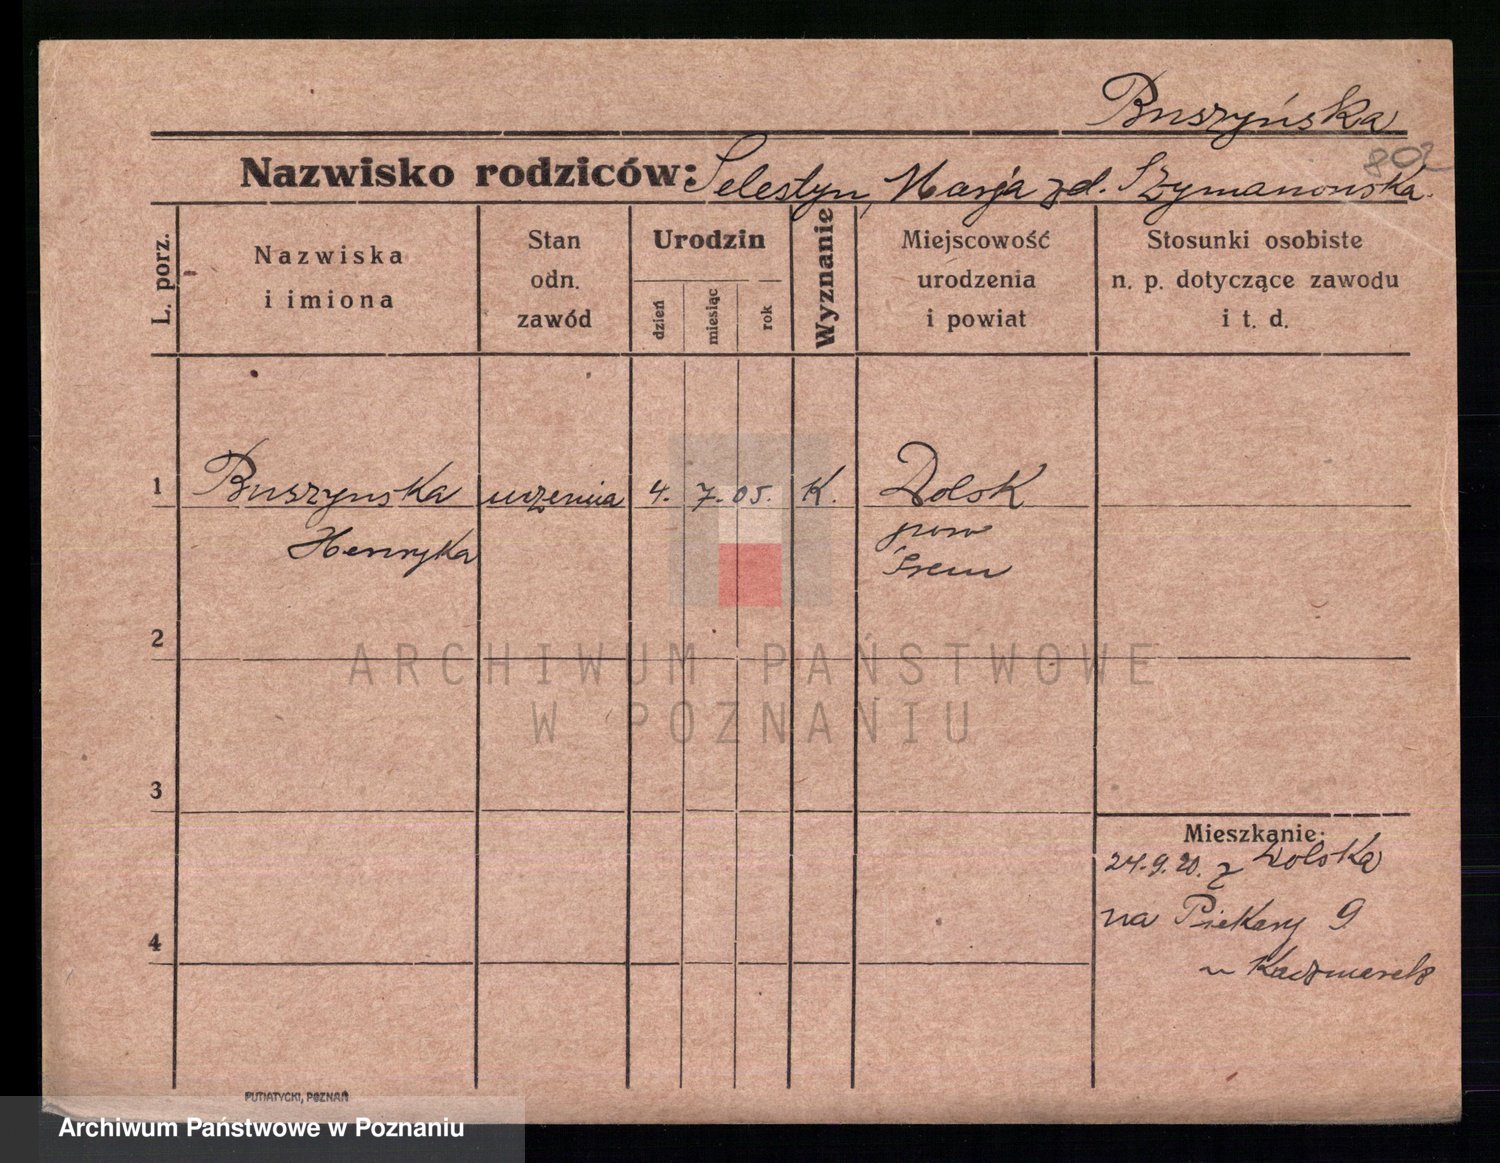 Buszyńska
802
Nazwisko rodziców: Selestyn, Marja zd. Szymanowska.
L. porz.
Nazwiska
i imiona
Stan
odn.
zawód
Urodzin
dzień
miesiąc
rok
Wyznanie
Miejscowość
urodzenia
i powiat
Stosunki osobiste
n. p. dotyczące zawodu
i t. d.
1 Buszynska uczenica 4. 7. 05. K. Dolsk
Henryka
pow
Śrem
2
ARCHIWUM PAŃSTWOWE
W POZNANIU
3
Mieszkanie:
24.9.20. z Dolska
na Piekary 9
4
u Kaczmarek
PUTIATYCKI, POZNAŃ
Archiwum Państwowe w Poznaniu